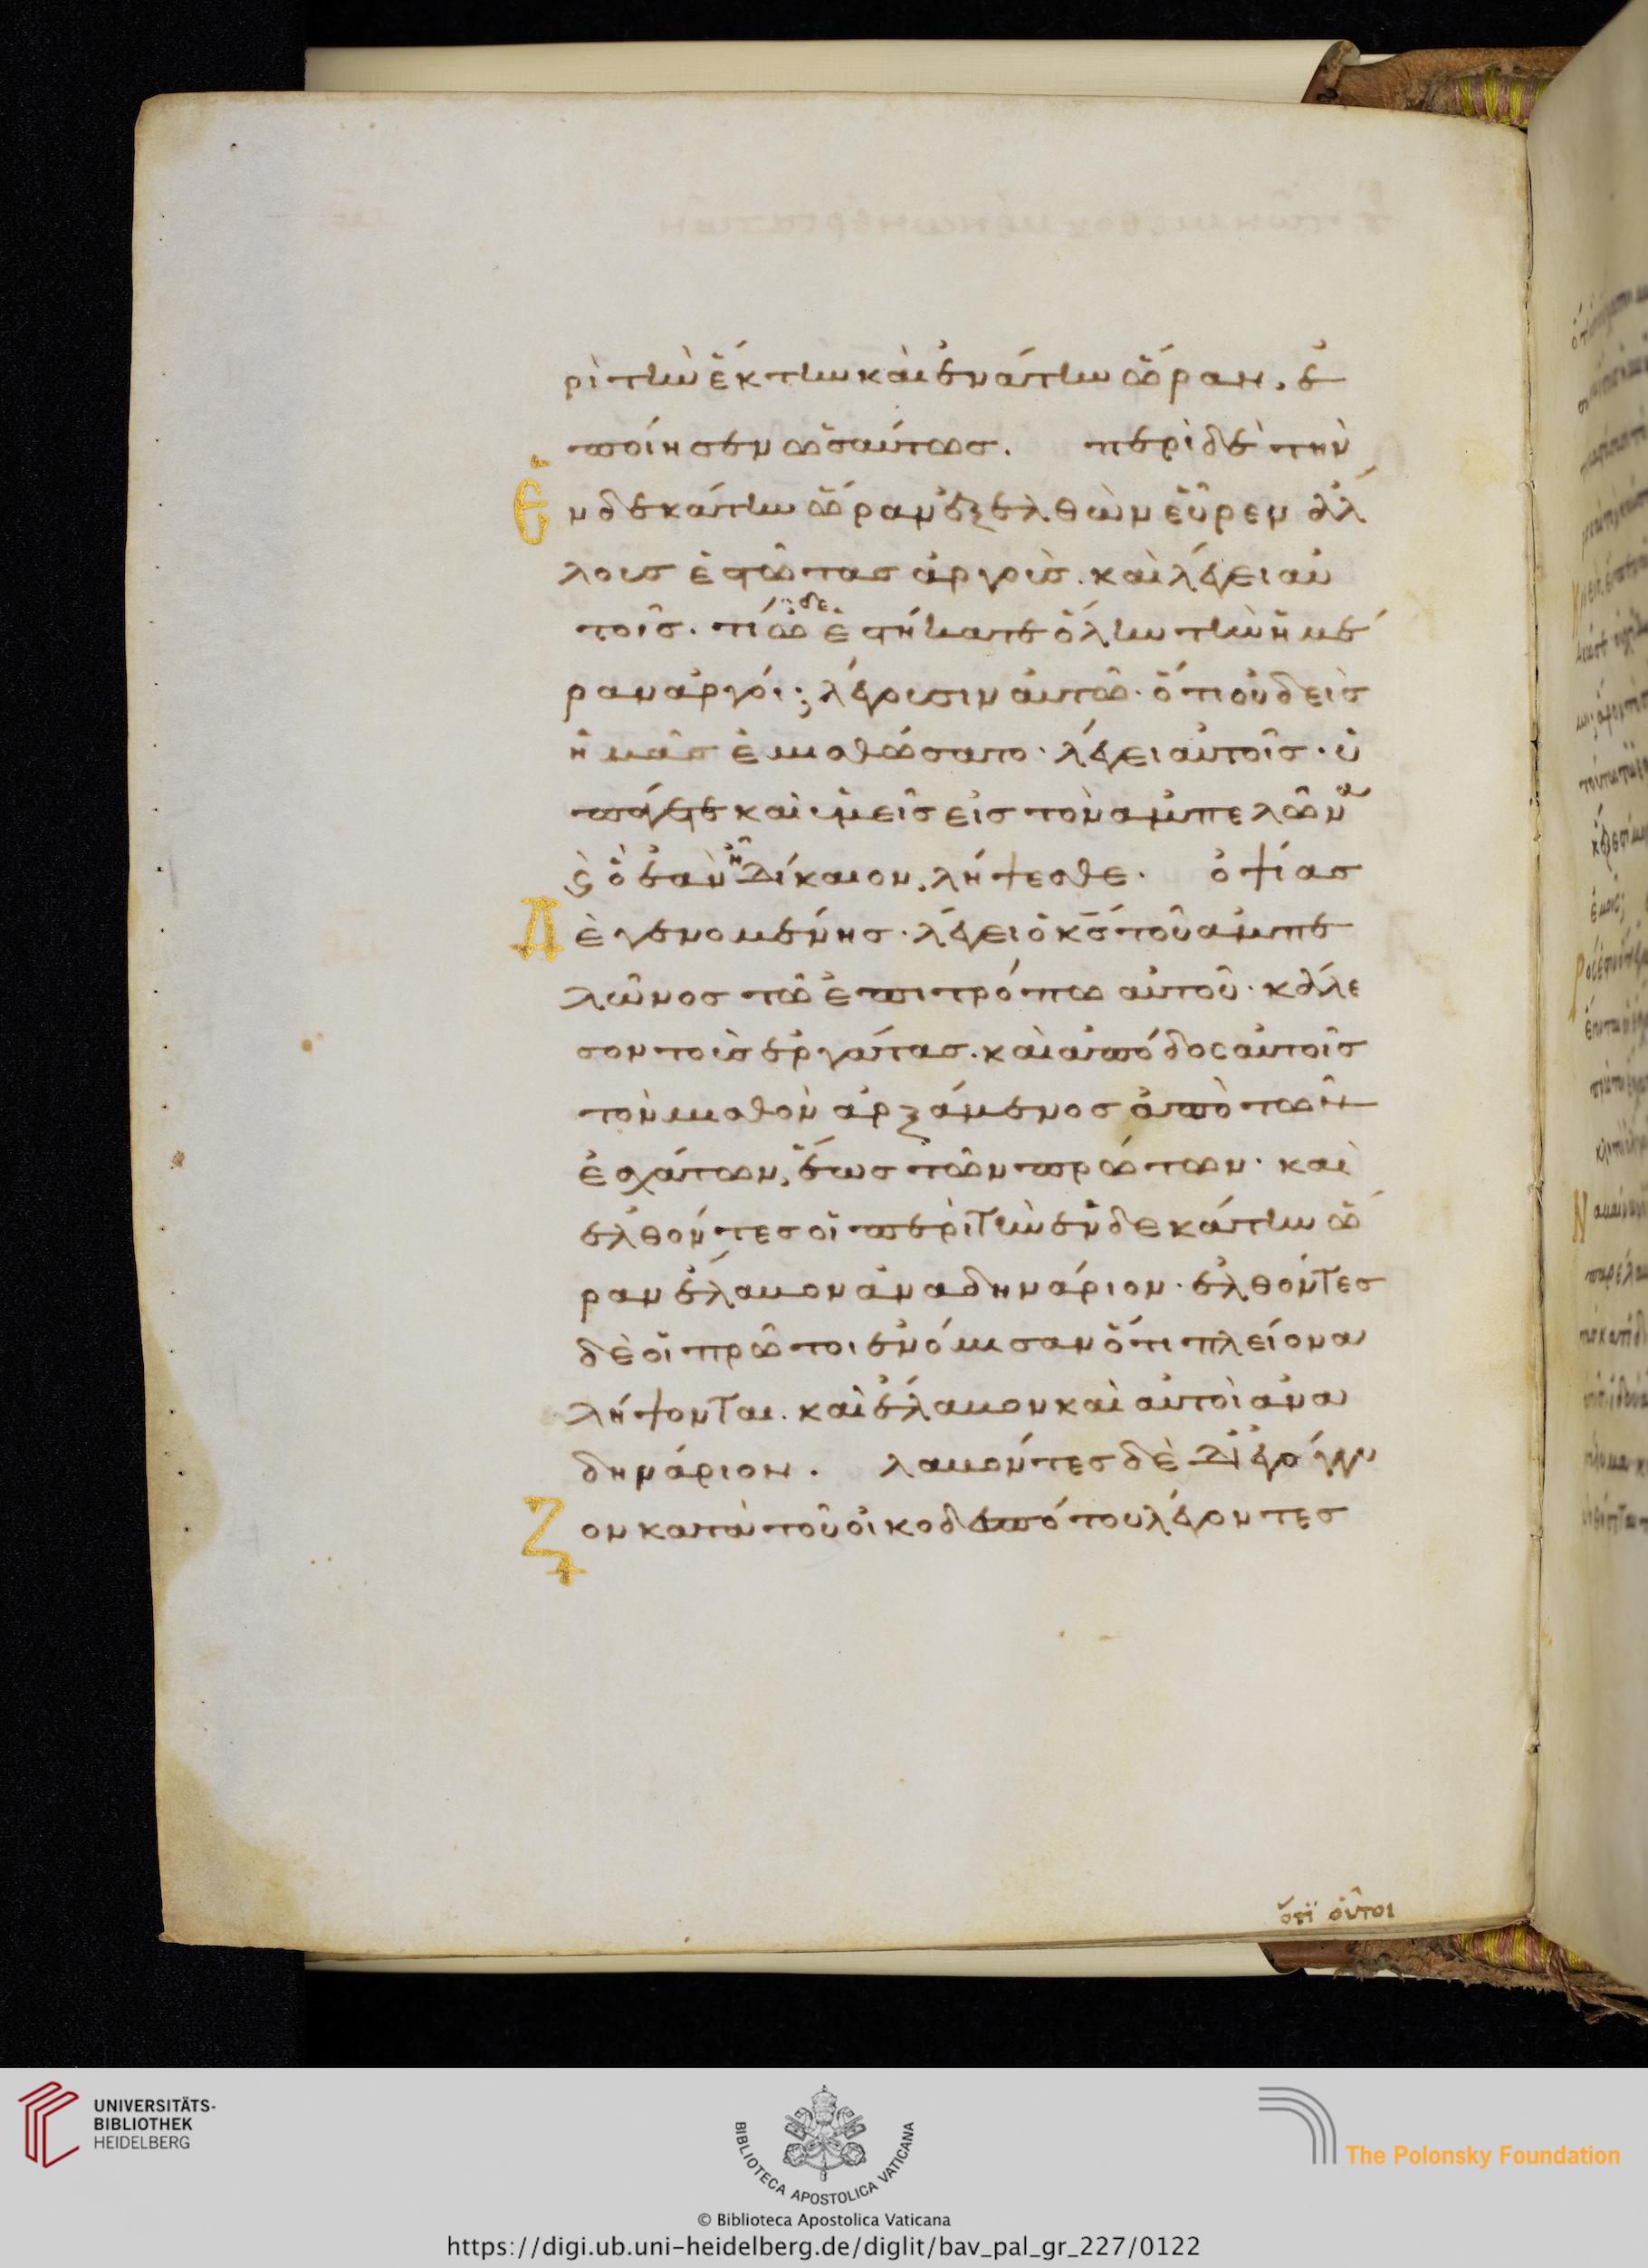 ρὶ τὴν ἕκτην καὶ ἐνάτην ὥραν, ἐ
ποίησεν ὡσαύτως. περὶ δὲ τὴν
Ἑνδεκάτην ὥραν ἐξελθὼν εὗρεν ἄλ
λους ἑστῶτας ἀργούς. καὶ λέγει αὐ
τοῖς. τί ὧδε ἑστήκατε ὅλην τὴν ἡμέ
ραν ἀργοί; λέγουσιν αὐτῶ· ὅτι οὐδεὶς
ἡμᾶς ἐμισθώσατο· λέγει αὐτοῖς· ὑ
πάγετε καὶ ὑμεῖς εἰς τὸν ἀμπελῶνα
ϛ ὃ ἐὰν ἦ δίκαιον, λήψεσθε. ὀψίας
Δὲ γενομένης· λέγει ὁ κς τοῦ ἀμπε
λῶνος τῶ ἐπιτρόπω αὐτοῦ· κάλε
σον τοὺς ἐργάτας. καὶ ἀπόδος αὐτοῖς
τὸν μισθὸν ἀρξάμενος ἀπὸ τῶν
ἐσχάτων, ἕως τῶν πρώτων· καὶ
ἐλθόντες οἱ περὶ τὴν ἑνδεκάτην ὥ
ραν ἔλαβον ἀνὰ δηνάριον· ἐλθόντες
δὲ οἱ πρῶτοι ἐνόμισαν ὅτι πλείονα
λήψονται. καὶ ἔλαβον καὶ αὐτοὶ ἀνὰ
δηνάριον. λαβόντες δὲ ἐγόγγυ
Ζον κατὰ τοῦ οἰκοδεσπότου λέγοντες
ὅτι οὗτοι
UNIVERSITÄTS-
BIBLIOTHEK
HEIDELBERG
BIBLIOTECA APOSTOLICA VATICANA
The Polonsky Foundation
© Biblioteca Apostolica Vaticana
https://digi.ub.uni-heidelberg.de/diglit/bav_pal_gr_227/0122